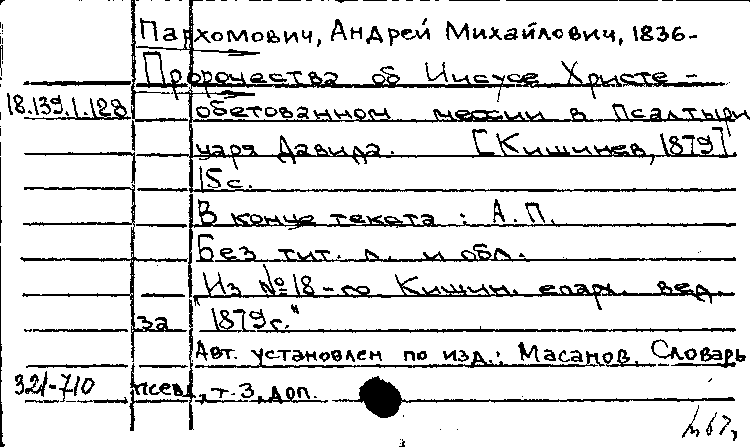 Пархомович, Андрей Михайлович, 1836-
Пророчества об Иисусе Христе -
18.139.1.128 обетованном мессии в Псалтыри
царя Давида. [Кишинев, 1879].
15с.
В конце текста : А.П.
Без тит. л. и обл.
"Из №18-го Кишин. епарх. вед.
за 1879г."
Авт. установлен по изд.: Масанов. Словарь
321-710 псевд., т. 3, доп.